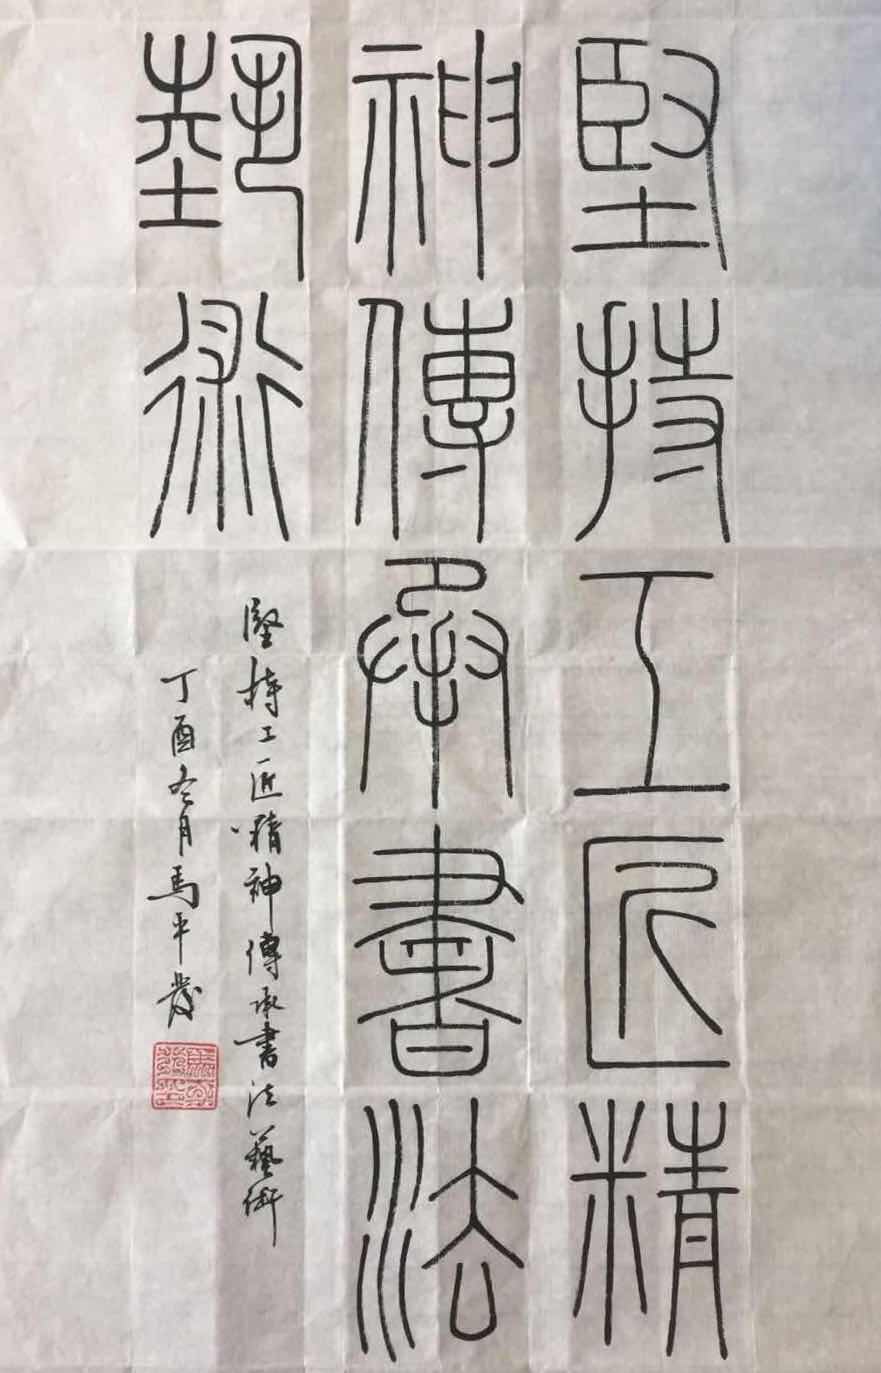 堅持工匠精
神傳承書法
埶術
堅持工匠精神傳承書法藝術
丁酉冬月馬平發